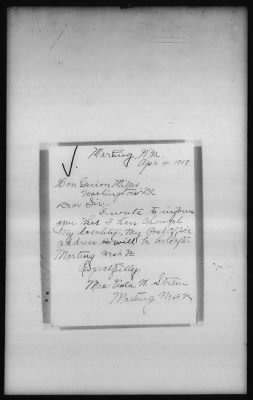 Marting, W.Va.
Apr 4. 1908.
Hon Guion Miller
Washington D.C
Dear Sir.
I write to inform
you that I have changed
my locality, my Post office
address will be
Marting West Va
Respectfully
Mrs Viola W.
Marting West Va